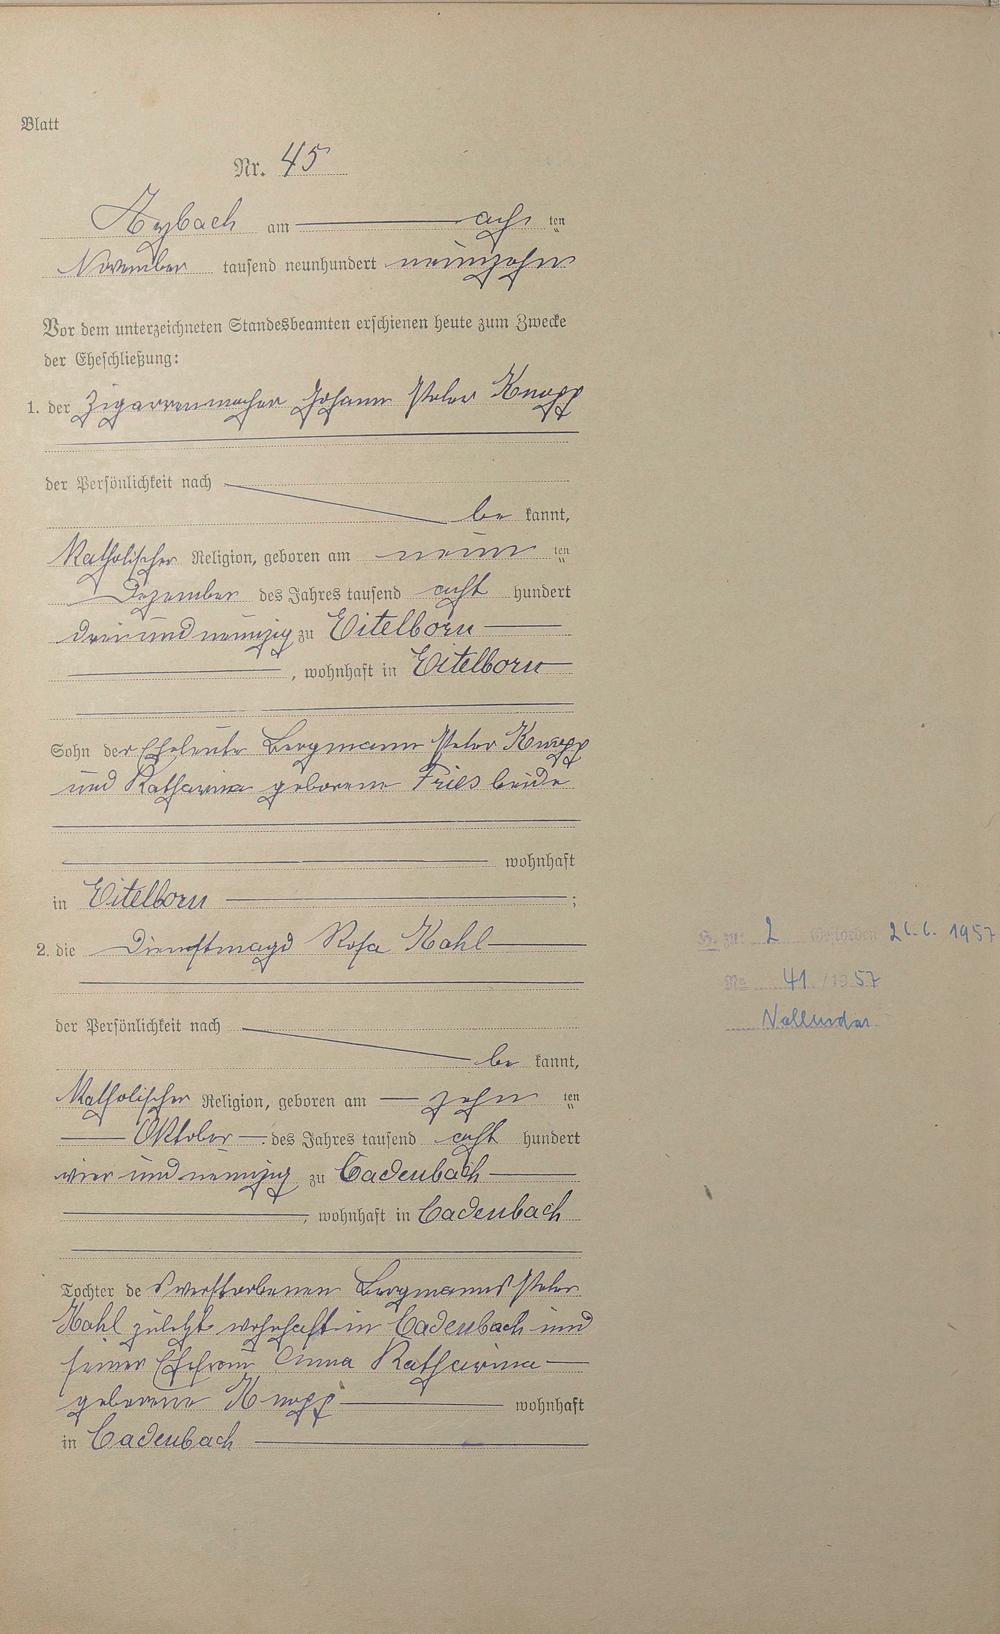 Blatt
Nr. 45
Arzbach am acht ten
November tausend neunhundert neunzehn
Vor dem unterzeichneten Standesbeamten erschienen heute zum Zwecke
der Eheschließung:
1. der Zigarrenmacher Johann Peter Knopp
der Persönlichkeit nach
be kannt,
Katholischer Religion, geboren am neun ten
Dezember des Jahres tausend acht hundert
drei und neunzig zu Eitelborn
, wohnhaft in Eitelborn
Sohn der Eheleute Bergmann Peter Knopp
und Katharina geborene Fries beide
wohnhaft
in Eitelborn ;
2. die Dienstmagd Rosa Kahl
der Persönlichkeit nach
be kannt,
Katholischer Religion, geboren am zehn ten
Oktober des Jahres tausend acht hundert
vier und neunzig zu Cadenbach
, wohnhaft in Cadenbach
Tochter des verstorbenen Bergmanns Peter
Kahl zuletzt wohnhaft in Cadenbach und
seiner Ehefrau Anna Katharina
geborene Knopp wohnhaft
in Cadenbach
zu: 2 Gestorben 1957
No 41 /1957
Vallendar